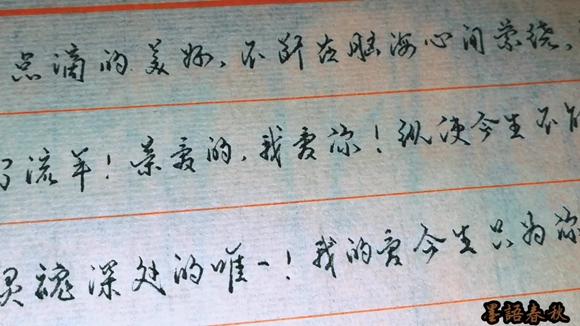 点滴的美好,不断在脑海心间萦绕,
了流年!亲爱的,我爱你!纵使今生不能
灵魂深处的唯一!我的爱今生只为你
墨語春秋